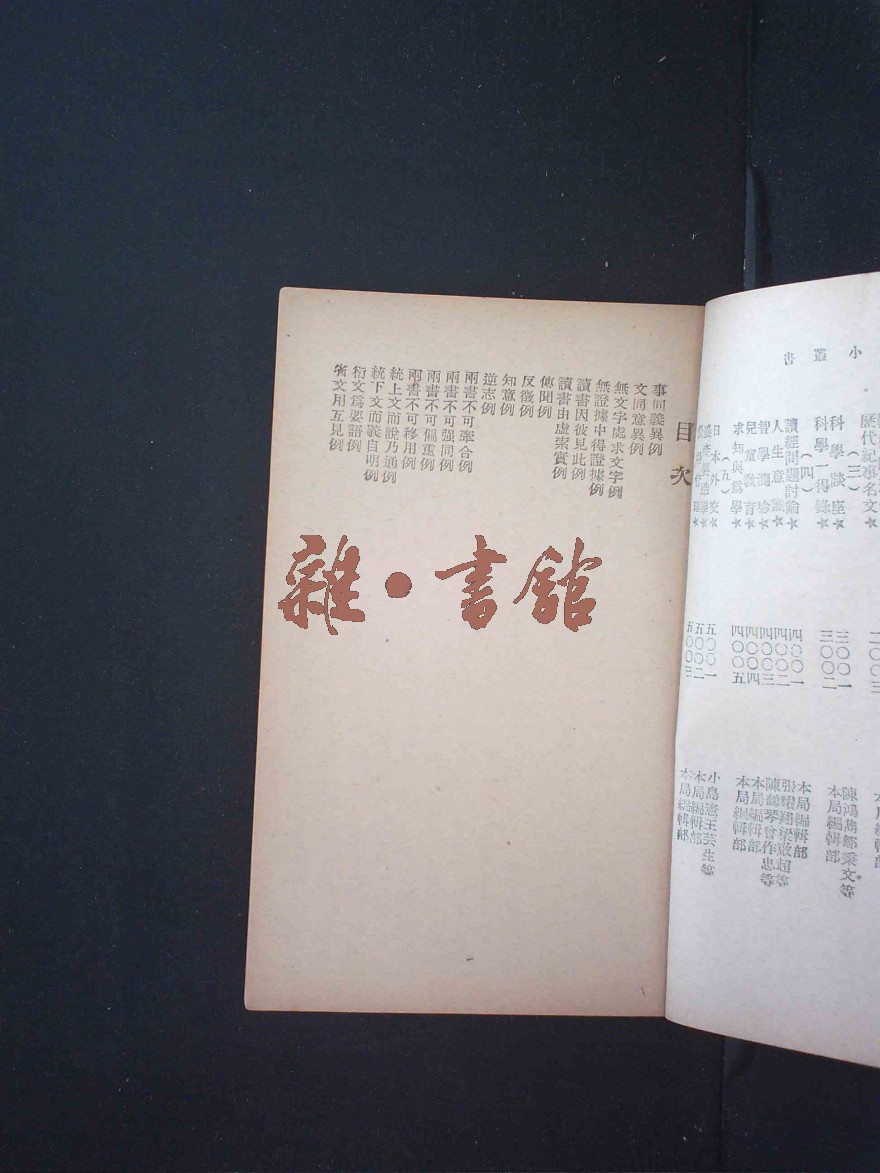 小叢書
歷代紀事名文★ 二〇〇三
(三)
科學談座★ 三〇〇一 陳鴻雋鄒秉文等
科學一得錄★ 三〇〇二 本局編輯部
(四)
讀經問題討論★ 四〇〇一 本局編輯部
人生意識★ 四〇〇二 張耀翔梁啟超等
智學測驗★ 四〇〇三 陳鶴琴曾作忠等
兒童教育★ 四〇〇四 本局編輯部
求知與爲學★ 四〇〇五 本局編輯部
(五)
日本外交★ 五〇〇一 小島憲王芸生等
五〇〇二 本局編輯部
五〇〇三 本局編輯部
目次
事同義異例
文同意異例
無文字處求文字例
無證據中得證據例
讀書因彼見此例
讀書由虛索實例
傳聞例
反徵例
知意例
逆志例
兩書不可牽合例
兩書不可强同例
兩書不可偏重例
兩書不可移用例
統上文而說乃通例
統下文而義自明例
衍文爲要語例
省文用互見例
雜·書館